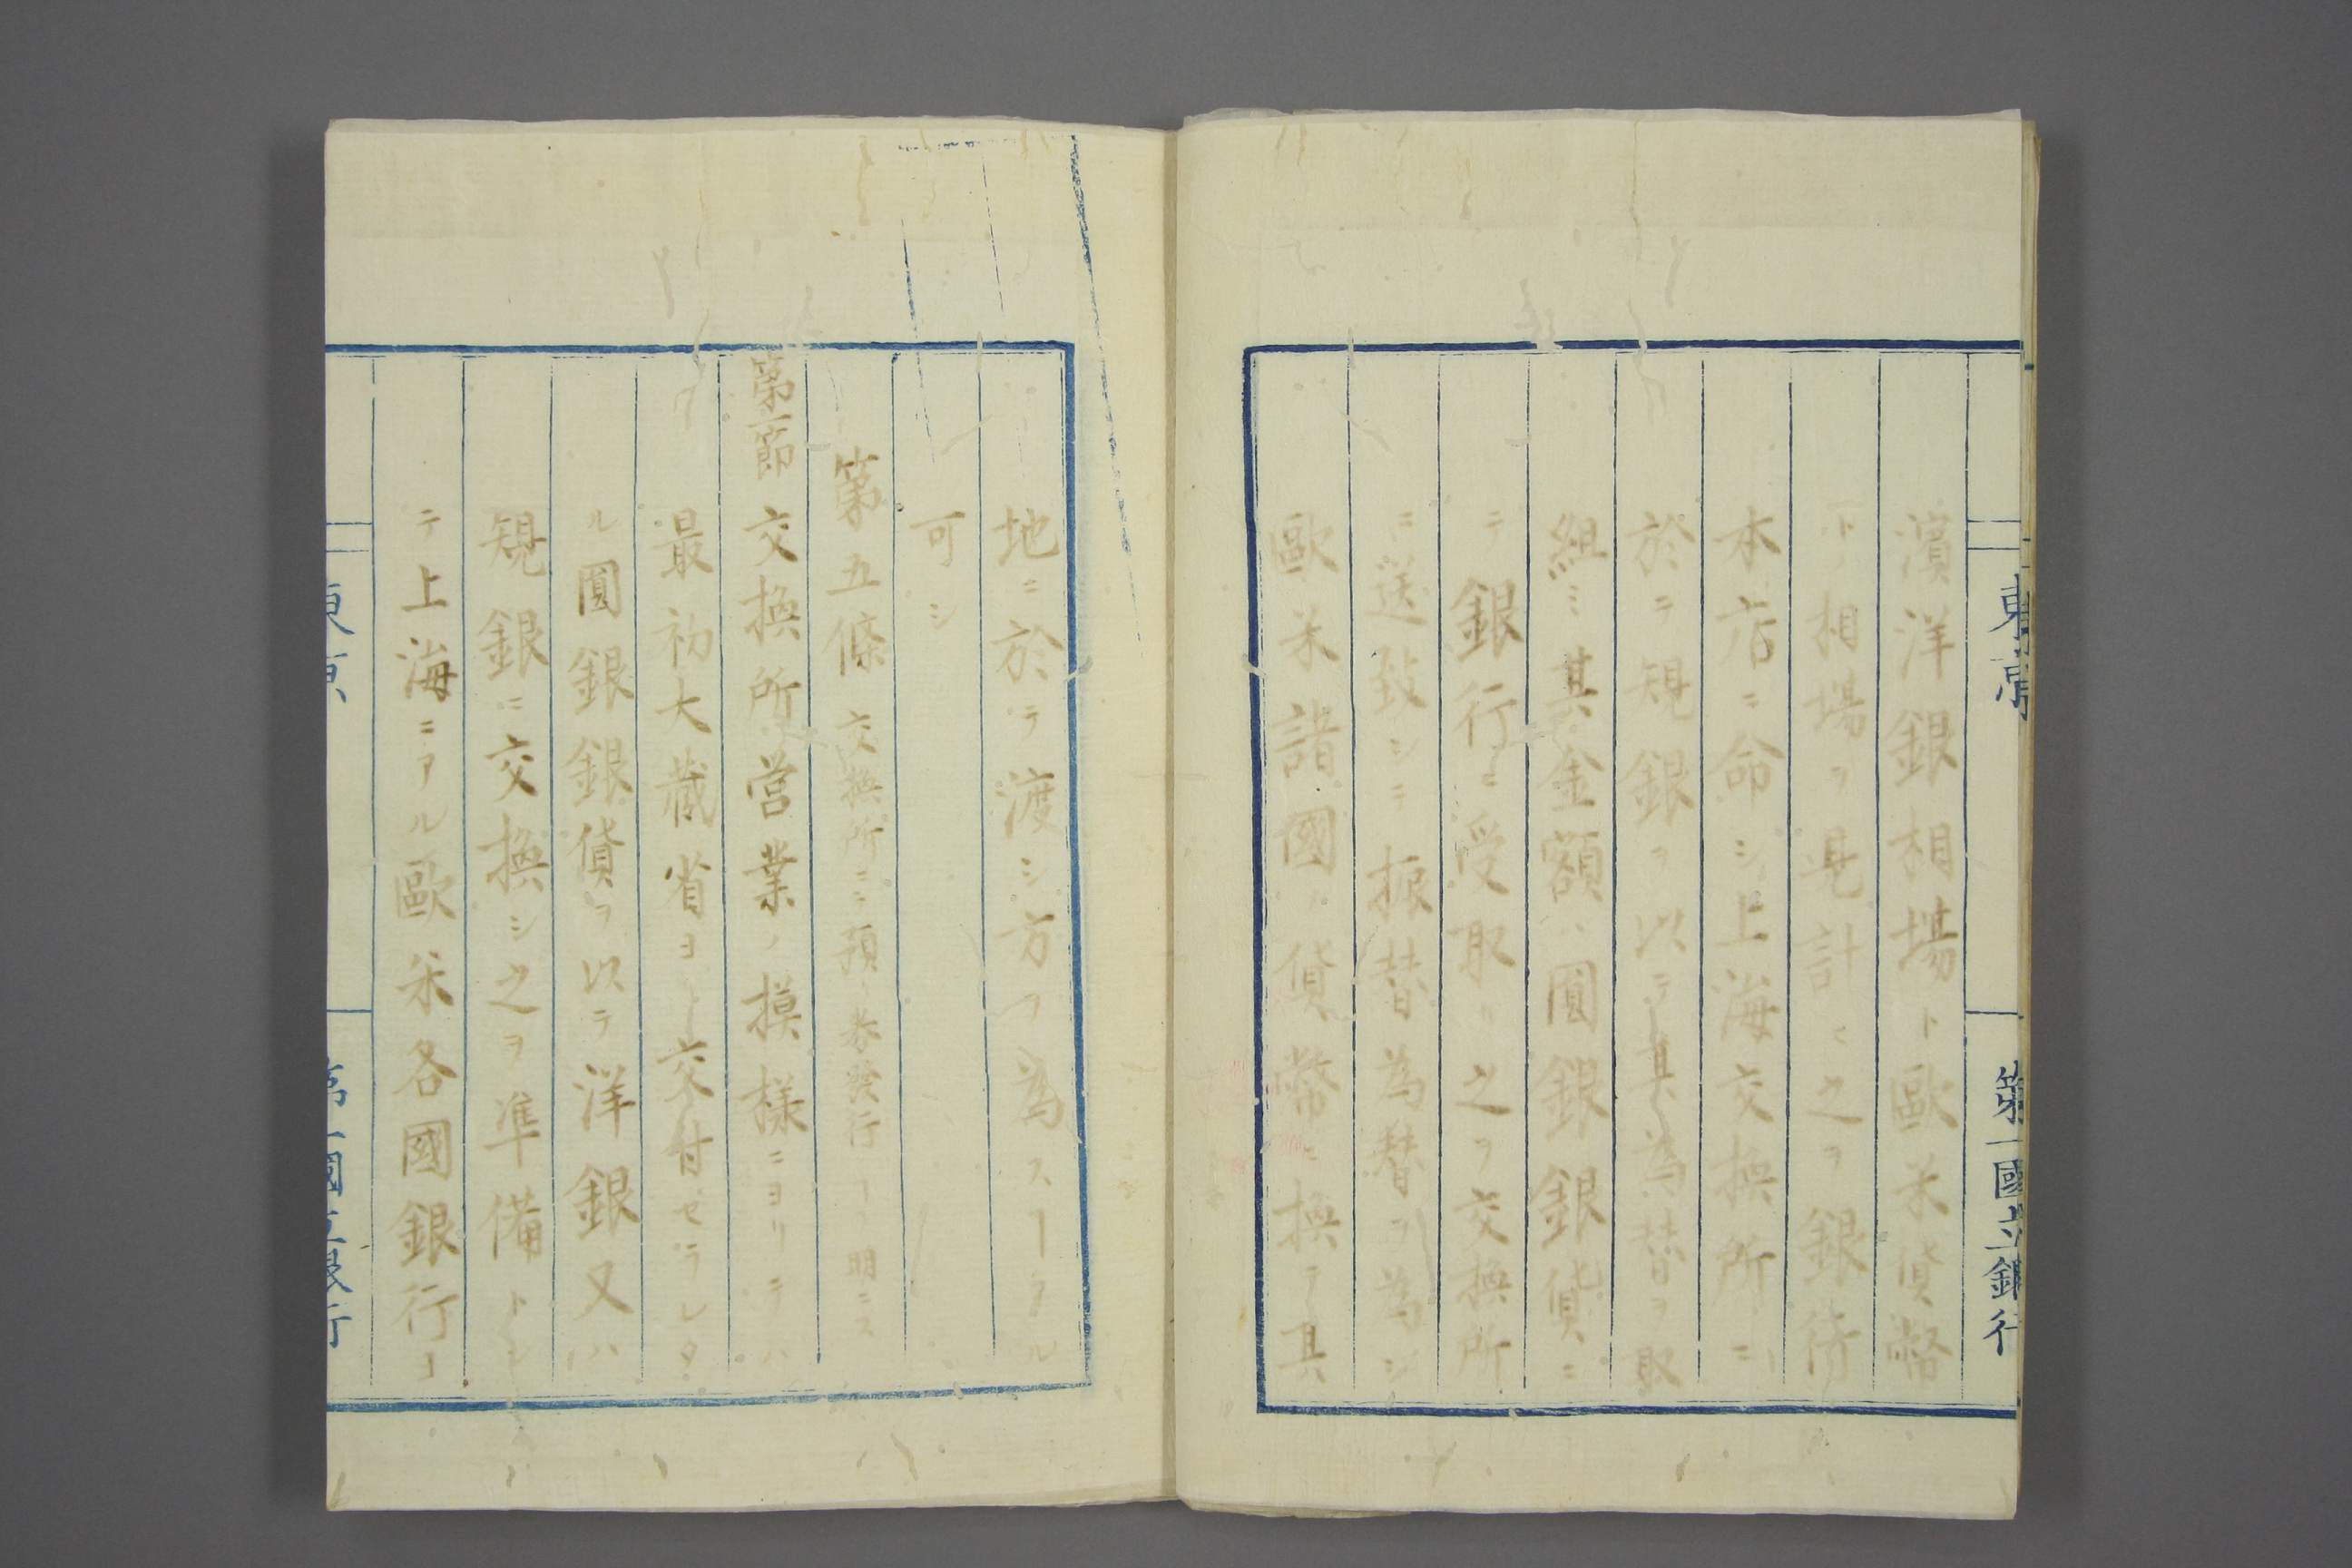 東京 第一國立銀行
濱洋銀相場ト歐米貨幣
トノ相場ヲ見計ヒ之ヲ銀行
本店ニ命シ上海交換所ニ
於テ規銀ヲ以テ其為替ヲ取
組ミ其金額ハ圓銀銀貨ニ
テ銀行ニ受取リ之ヲ交換所
ニ送致シテ振替為替ヲ為シ
歐米諸國ノ貨幣ニ換ヲ其
地ニ於テ渡シ方ヲ為スヿアル
可シ
第五條 交換所ニテ預リ券發行ノヿヲ明ニス
第一節 交換所営業ノ摸様ニヨリテハ
最初大蔵省ヨリ交付セラレタ
ル圓銀銀貨ヲ以テ洋銀又ハ
規銀ニ交換シ之ヲ準備トシ
テ上海ニアル歐米各國銀行ヨ
東京 第一國立銀行